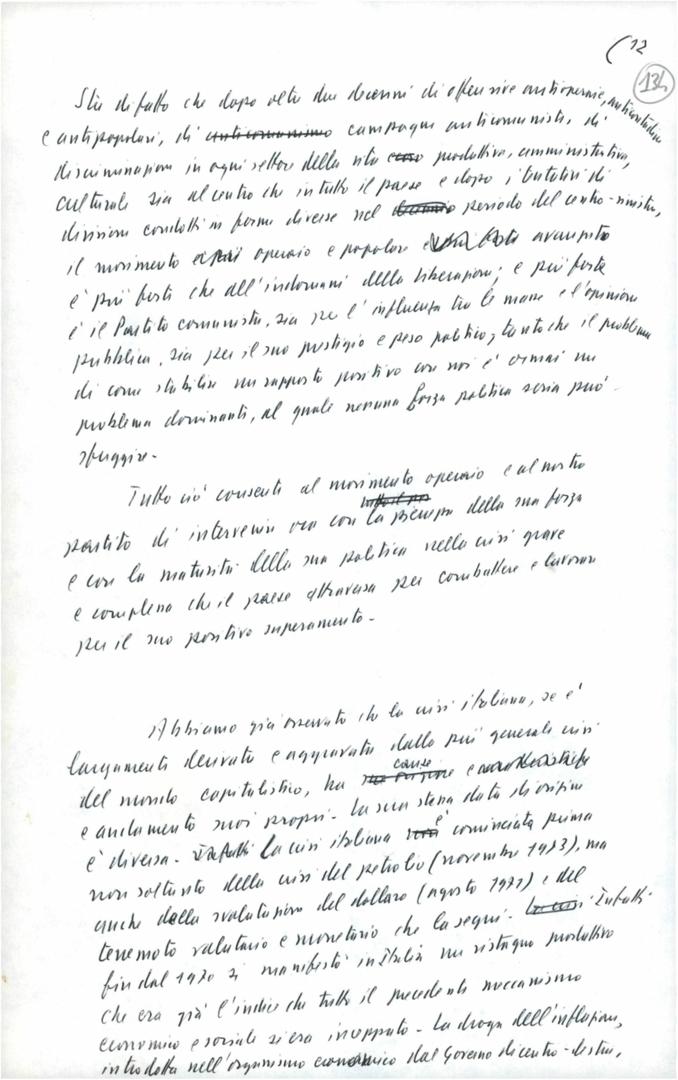 (12
134
Sta di fatto che dopo oltre due decenni di offensive antioperaie, anticontadine
e antipopolari, di anticomunismo campagne anticomuniste, di
discriminazioni in ogni settore della vita produttiva, amministrativa,
culturale sia al centro che in tutto il paese e dopo i tentativi di
divisione condotti in forme diverse nel periodo del centro-sinistra,
il movimento operaio e popolare avanzato
è più forte che all'indomani della Liberazione; e più forte
è il Partito comunista, sia per l'influenza tra le masse e l'opinione
pubblica, sia per il suo prestigio e peso politico; tanto che il problema
di come stabilire un rapporto positivo con noi è ormai un
problema dominante, al quale nessuna forza politica seria può
sfuggire.
Tutto ciò consente al movimento operaio e al nostro
partito di intervenire ora con la pienezza della sua forza
e con la maturità della sua politica nella crisi grave
e complessa che il paese attraversa per combattere e lavorare
per il suo positivo superamento.
Abbiamo già osservato che la crisi italiana, se è
largamente derivata e aggravata dalla più generale crisi
del mondo capitalistico, ha cause e caratteristiche
e andamento suoi propri. La sua stessa data di origine
è diversa. Infatti La crisi italiana è cominciata prima
non soltanto della crisi del petrolio (novembre 1973), ma
anche della svalutazione del dollaro (agosto 1971) e del
terremoto valutario e monetario che la seguì. La crisi Infatti
fin dal 1970 si manifestò in Italia un ristagno produttivo
che era già l'indice che tutto il precedente meccanismo
economico e sociale si era inceppato. La droga dell'inflazione,
introdotta nell'organismo economico dal Governo di centro-destra,